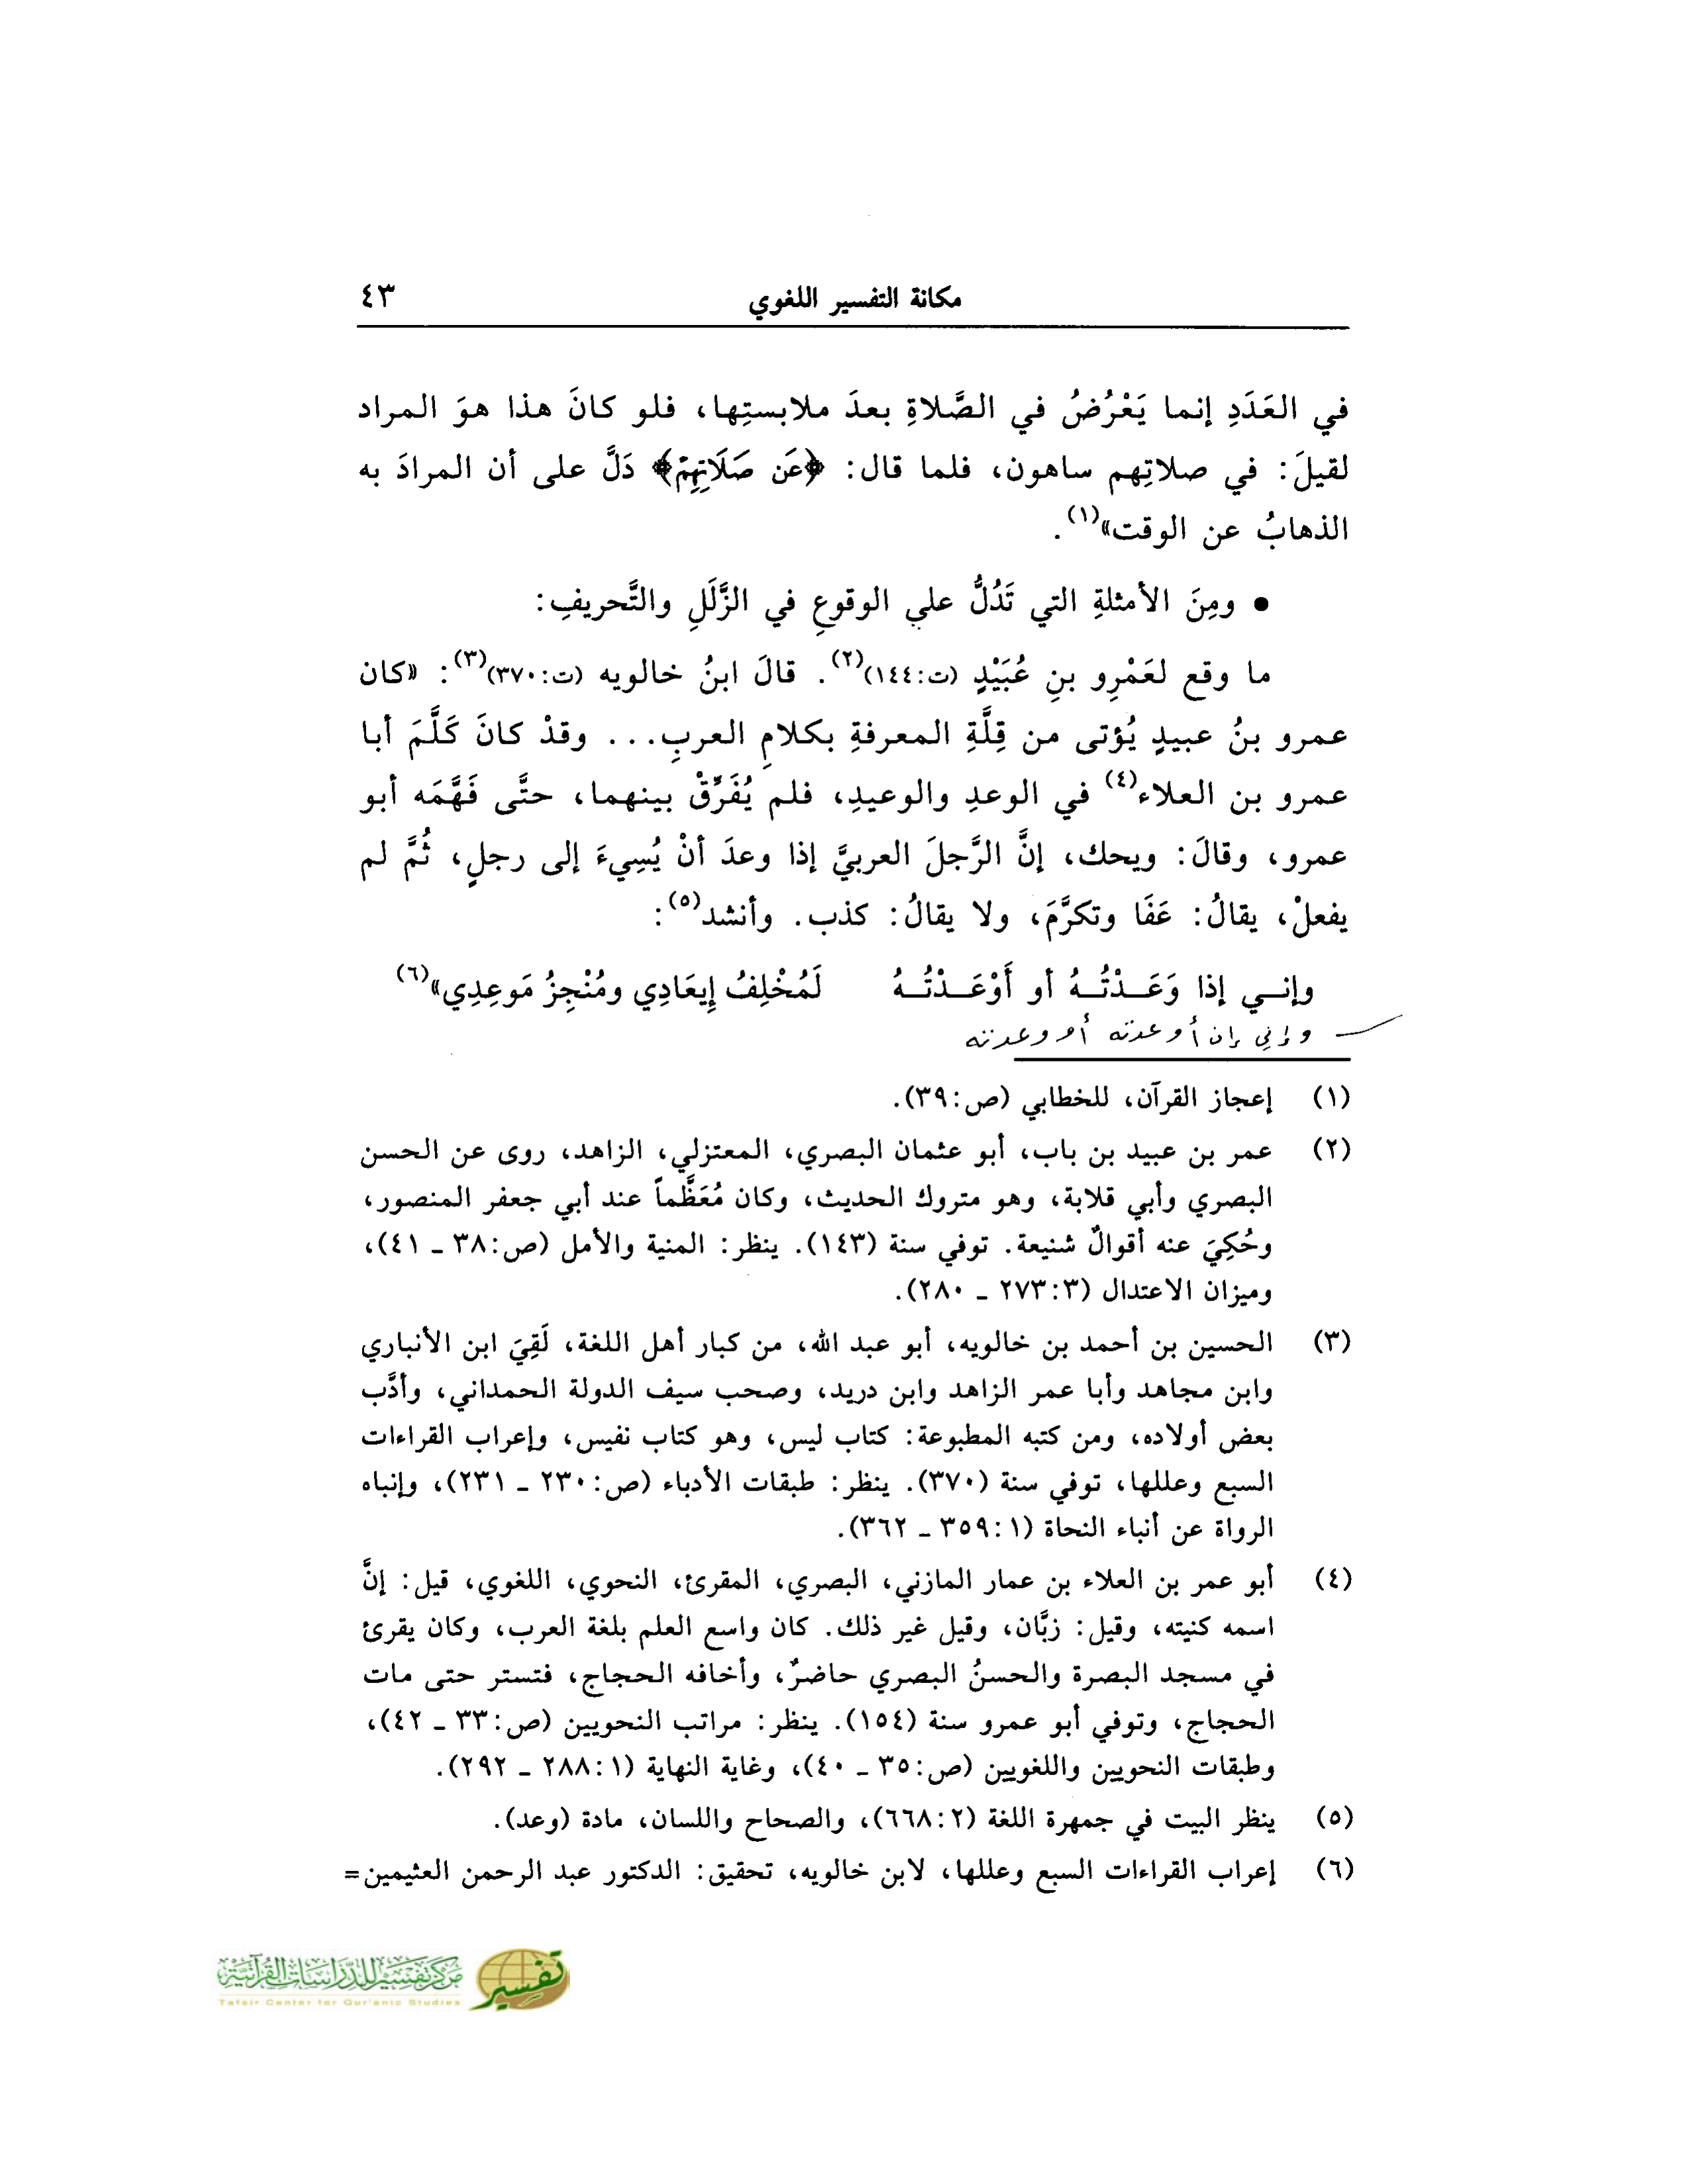 مكانة التفسير اللغوي ٤٣
في العَدَدِ إنما يَعْرُضُ في الصَّلاةِ بعدَ ملابستِها، فلو كانَ هذا هوَ المراد
لقيلَ: في صلاتِهم ساهون، فلما قال: ﴿عَن صَلَاتِهِمْ﴾ دَلَّ على أن المرادَ به
الذهابُ عن الوقت»(١).
• ومِنَ الأمثلةِ التي تَدُلُّ على الوقوعِ في الزَّلَلِ والتَّحريفِ:
ما وقع لعَمْرِو بنِ عُبَيْدٍ (ت:١٤٤)(٢). قالَ ابنُ خالويه (ت:٣٧٠)(٣): «كان
عمرو بنُ عبيدٍ يُؤتى من قِلَّةِ المعرفةِ بكلامِ العربِ... وقدْ كانَ كَلَّمَ أبا
عمرو بن العلاء(٤) في الوعدِ والوعيدِ، فلم يُفَرِّقْ بينهما، حتَّى فَهَّمَه أبو
عمرو، وقالَ: ويحك، إنَّ الرَّجلَ العربيَّ إذا وعدَ أنْ يُسِيءَ إلى رجلٍ، ثُمَّ لم
يفعلْ، يقالُ: عَفَا وتكرَّمَ، ولا يقالُ: كذب. وأنشد(٥):
وإنـي إذا وَعَـدْتُـهُ أو أَوْعَـدْتُـهُ لَمُخْلِفُ إِيعَادِي ومُنْجِزُ مَوعِدِي»(٦)
وإني إن أوعدته أو وعدته
(١) إعجاز القرآن، للخطابي (ص:٣٩).
(٢) عمر بن عبيد بن باب، أبو عثمان البصري، المعتزلي، الزاهد، روى عن الحسن
البصري وأبي قلابة، وهو متروك الحديث، وكان مُعَظَّماً عند أبي جعفر المنصور،
وحُكِيَ عنه أقوالٌ شنيعة. توفي سنة (١٤٣). ينظر: المنية والأمل (ص:٣٨ ـ ٤١)،
وميزان الاعتدال (٣:٢٧٣ ـ ٢٨٠).
(٣) الحسين بن أحمد بن خالويه، أبو عبد الله، من كبار أهل اللغة، لَقِيَ ابن الأنباري
وابن مجاهد وأبا عمر الزاهد وابن دريد، وصحب سيف الدولة الحمداني، وأدَّب
بعض أولاده، ومن كتبه المطبوعة: كتاب ليس، وهو كتاب نفيس، وإعراب القراءات
السبع وعللها، توفي سنة (٣٧٠). ينظر: طبقات الأدباء (ص:٢٣٠ ـ ٢٣١)، وإنباه
الرواة عن أنباء النحاة (١:٣٥٩ ـ ٣٦٢).
(٤) أبو عمر بن العلاء بن عمار المازني، البصري، المقرئ، النحوي، اللغوي، قيل: إنَّ
اسمه كنيته، وقيل: زبَّان، وقيل غير ذلك. كان واسع العلم بلغة العرب، وكان يقرئ
في مسجد البصرة والحسنُ البصري حاضرٌ، وأخافه الحجاج، فتستر حتى مات
الحجاج، وتوفي أبو عمرو سنة (١٥٤). ينظر: مراتب النحويين (ص:٣٣ ـ ٤٢)،
وطبقات النحويين واللغويين (ص:٣٥ ـ ٤٠)، وغاية النهاية (١:٢٨٨ ـ ٢٩٢).
(٥) ينظر البيت في جمهرة اللغة (٢:٦٦٨)، والصحاح واللسان، مادة (وعد).
(٦) إعراب القراءات السبع وعللها، لابن خالويه، تحقيق: الدكتور عبد الرحمن العثيمين=
مركز تفسير للدراسات القرآنية
Tafsir Center for Qur'anic Studies
تفسير